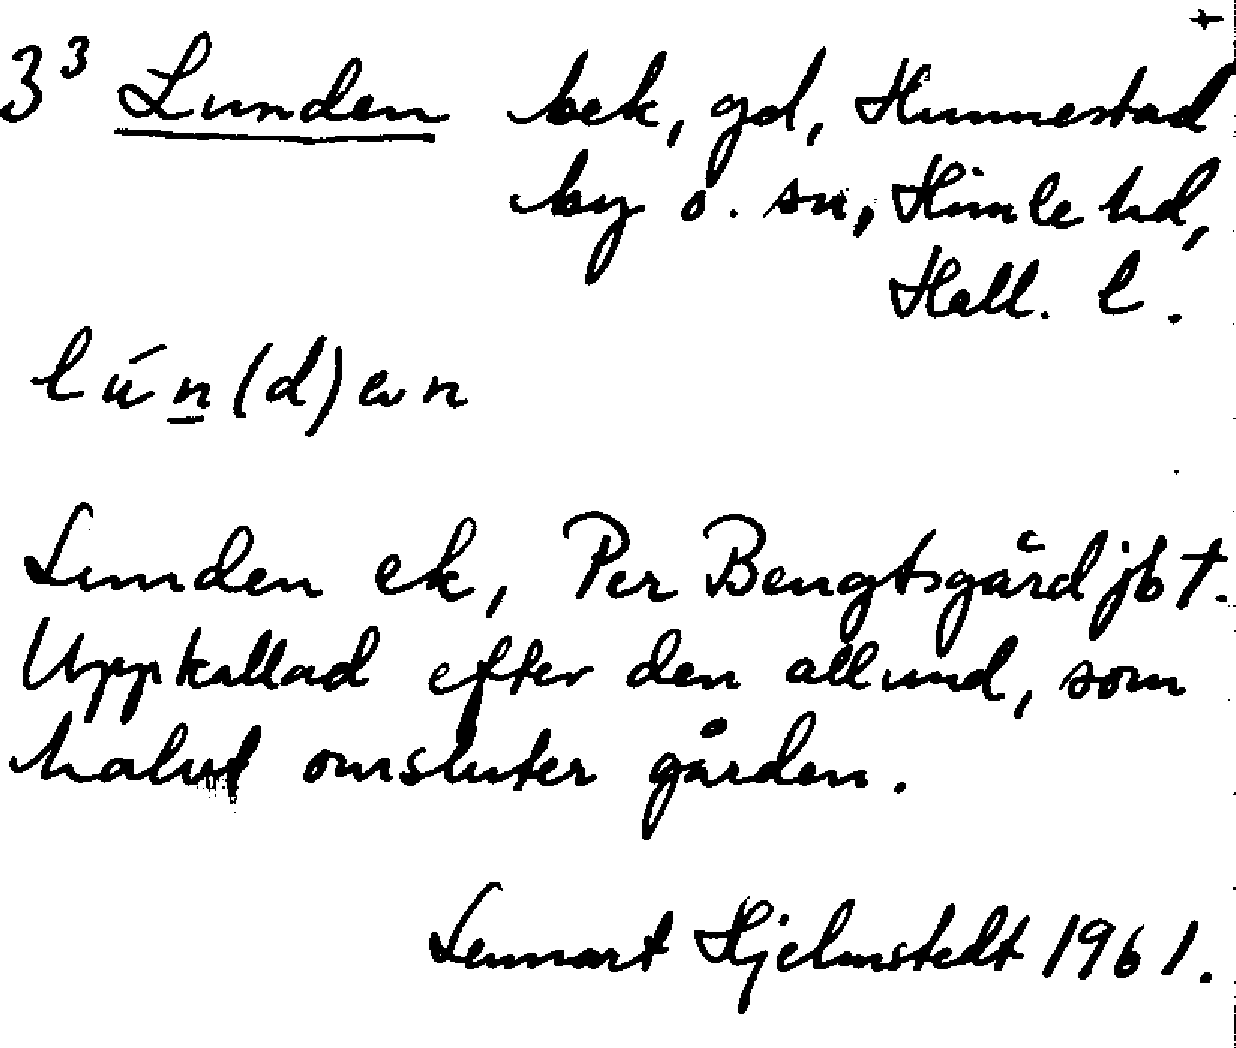 +
3³ Lunden bek, gd, Hunnestad
by o. sn, Himle hd,
Hall. l.
lú̱n(d)ən
Lunden ek, Per Bengtsgård jbt.
Uppkallad efter den allund, som
halvt omsluter gården.
Lennart Hjelmstedt 1961.